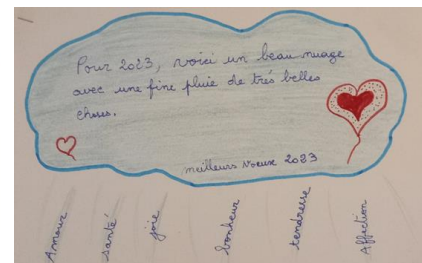 Pour 2023, voici un beau nuage
avec une fine pluie de très belles
choses.
meilleurs voeux 2023
Amour
santé
joie
bonheur
tendresse
Affection